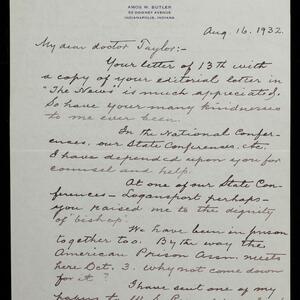 AMOS W. BUTLER
52 DOWNEY AVENUE
INDIANAPOLIS, INDIANA
Aug. 16, 1932.
My dear doctor Taylor:-
Your letter of 13th with
a copy of your editorial letter in
"The News" is much appreciated.
So have your many kindnesses
to me ever been.
In the National Confer-
ences, our State Conferences, etc.
I have depended upon you for
counsel and help.
At one of our State Con-
ferences - Logansport perhaps -
you raised me to the dignity
of "bishop".
We have been in prison
together too. By the way the
American Prison Assn. meets
here Oct. 3. Why not come down
for it?
I have sent one of my